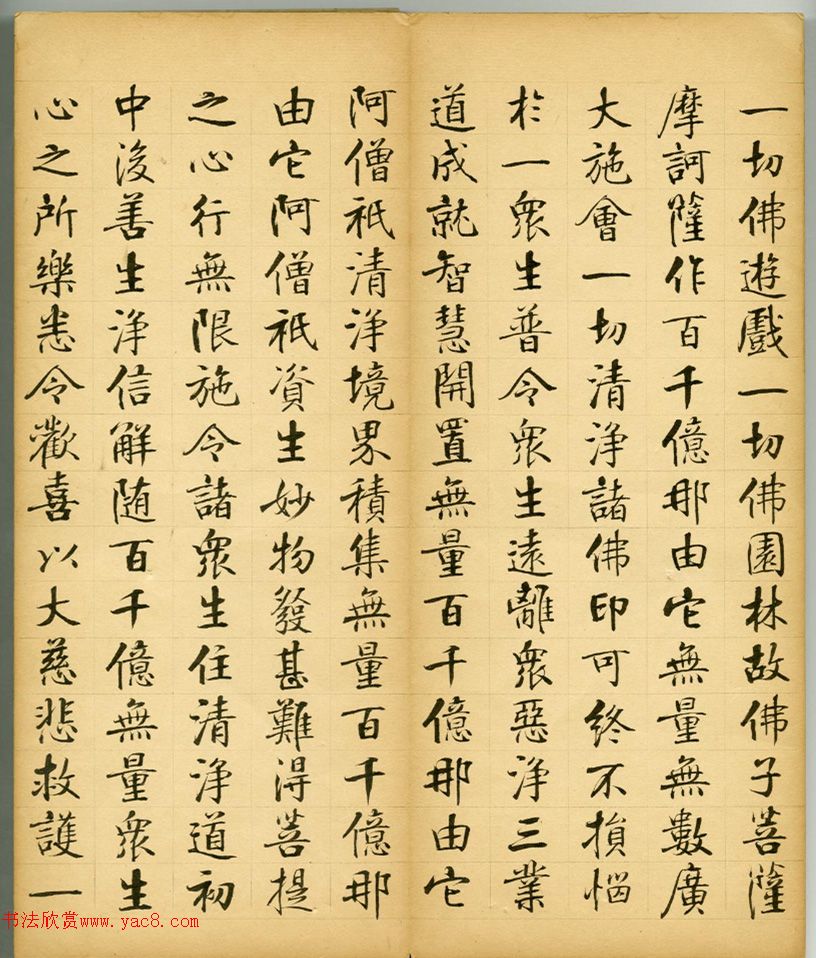 一切佛遊戲一切佛園林故佛子菩薩
摩訶薩作百千億那由它無量無數廣
大施會一切清淨諸佛印可終不損惱
於一眾生普令眾生遠離眾惡淨三業
道成就智慧開置無量百千億那由它
阿僧祇清淨境界積集無量百千億那
由它阿僧祇資生妙物發甚難得菩提
之心行無限施令諸眾生住清淨道初
中後善生淨信解隨百千億無量眾生
心之所樂悉令歡喜以大慈悲救護一
书法欣赏www.yac8.com